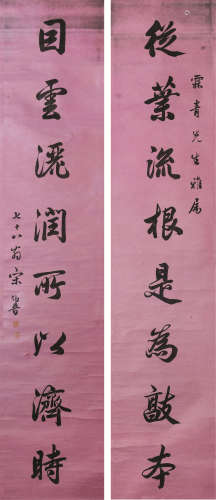 霖青先生雅属
從葉流根是為敦本
回雲灑潤所以濟時
七十八翁宋伯魯